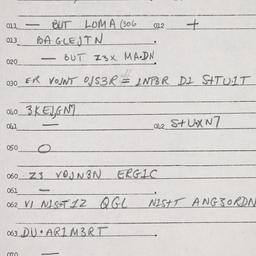 011 — BUT LOMA (306 012 +
013 BAGLEJTN
020 — BUT Z3X MA.DN
030 ER VOJNT O/S3R = INT3R D1 S+TU1T
040 3KEJGN7
041 — 042 S+UXN7
050 O
060 Z3 VOJN3N ERGIC
061 —
062 VI NIS+T 1Z QGL NIS+T ANG3ORDN
063 DU•AR1M3RT
070 —